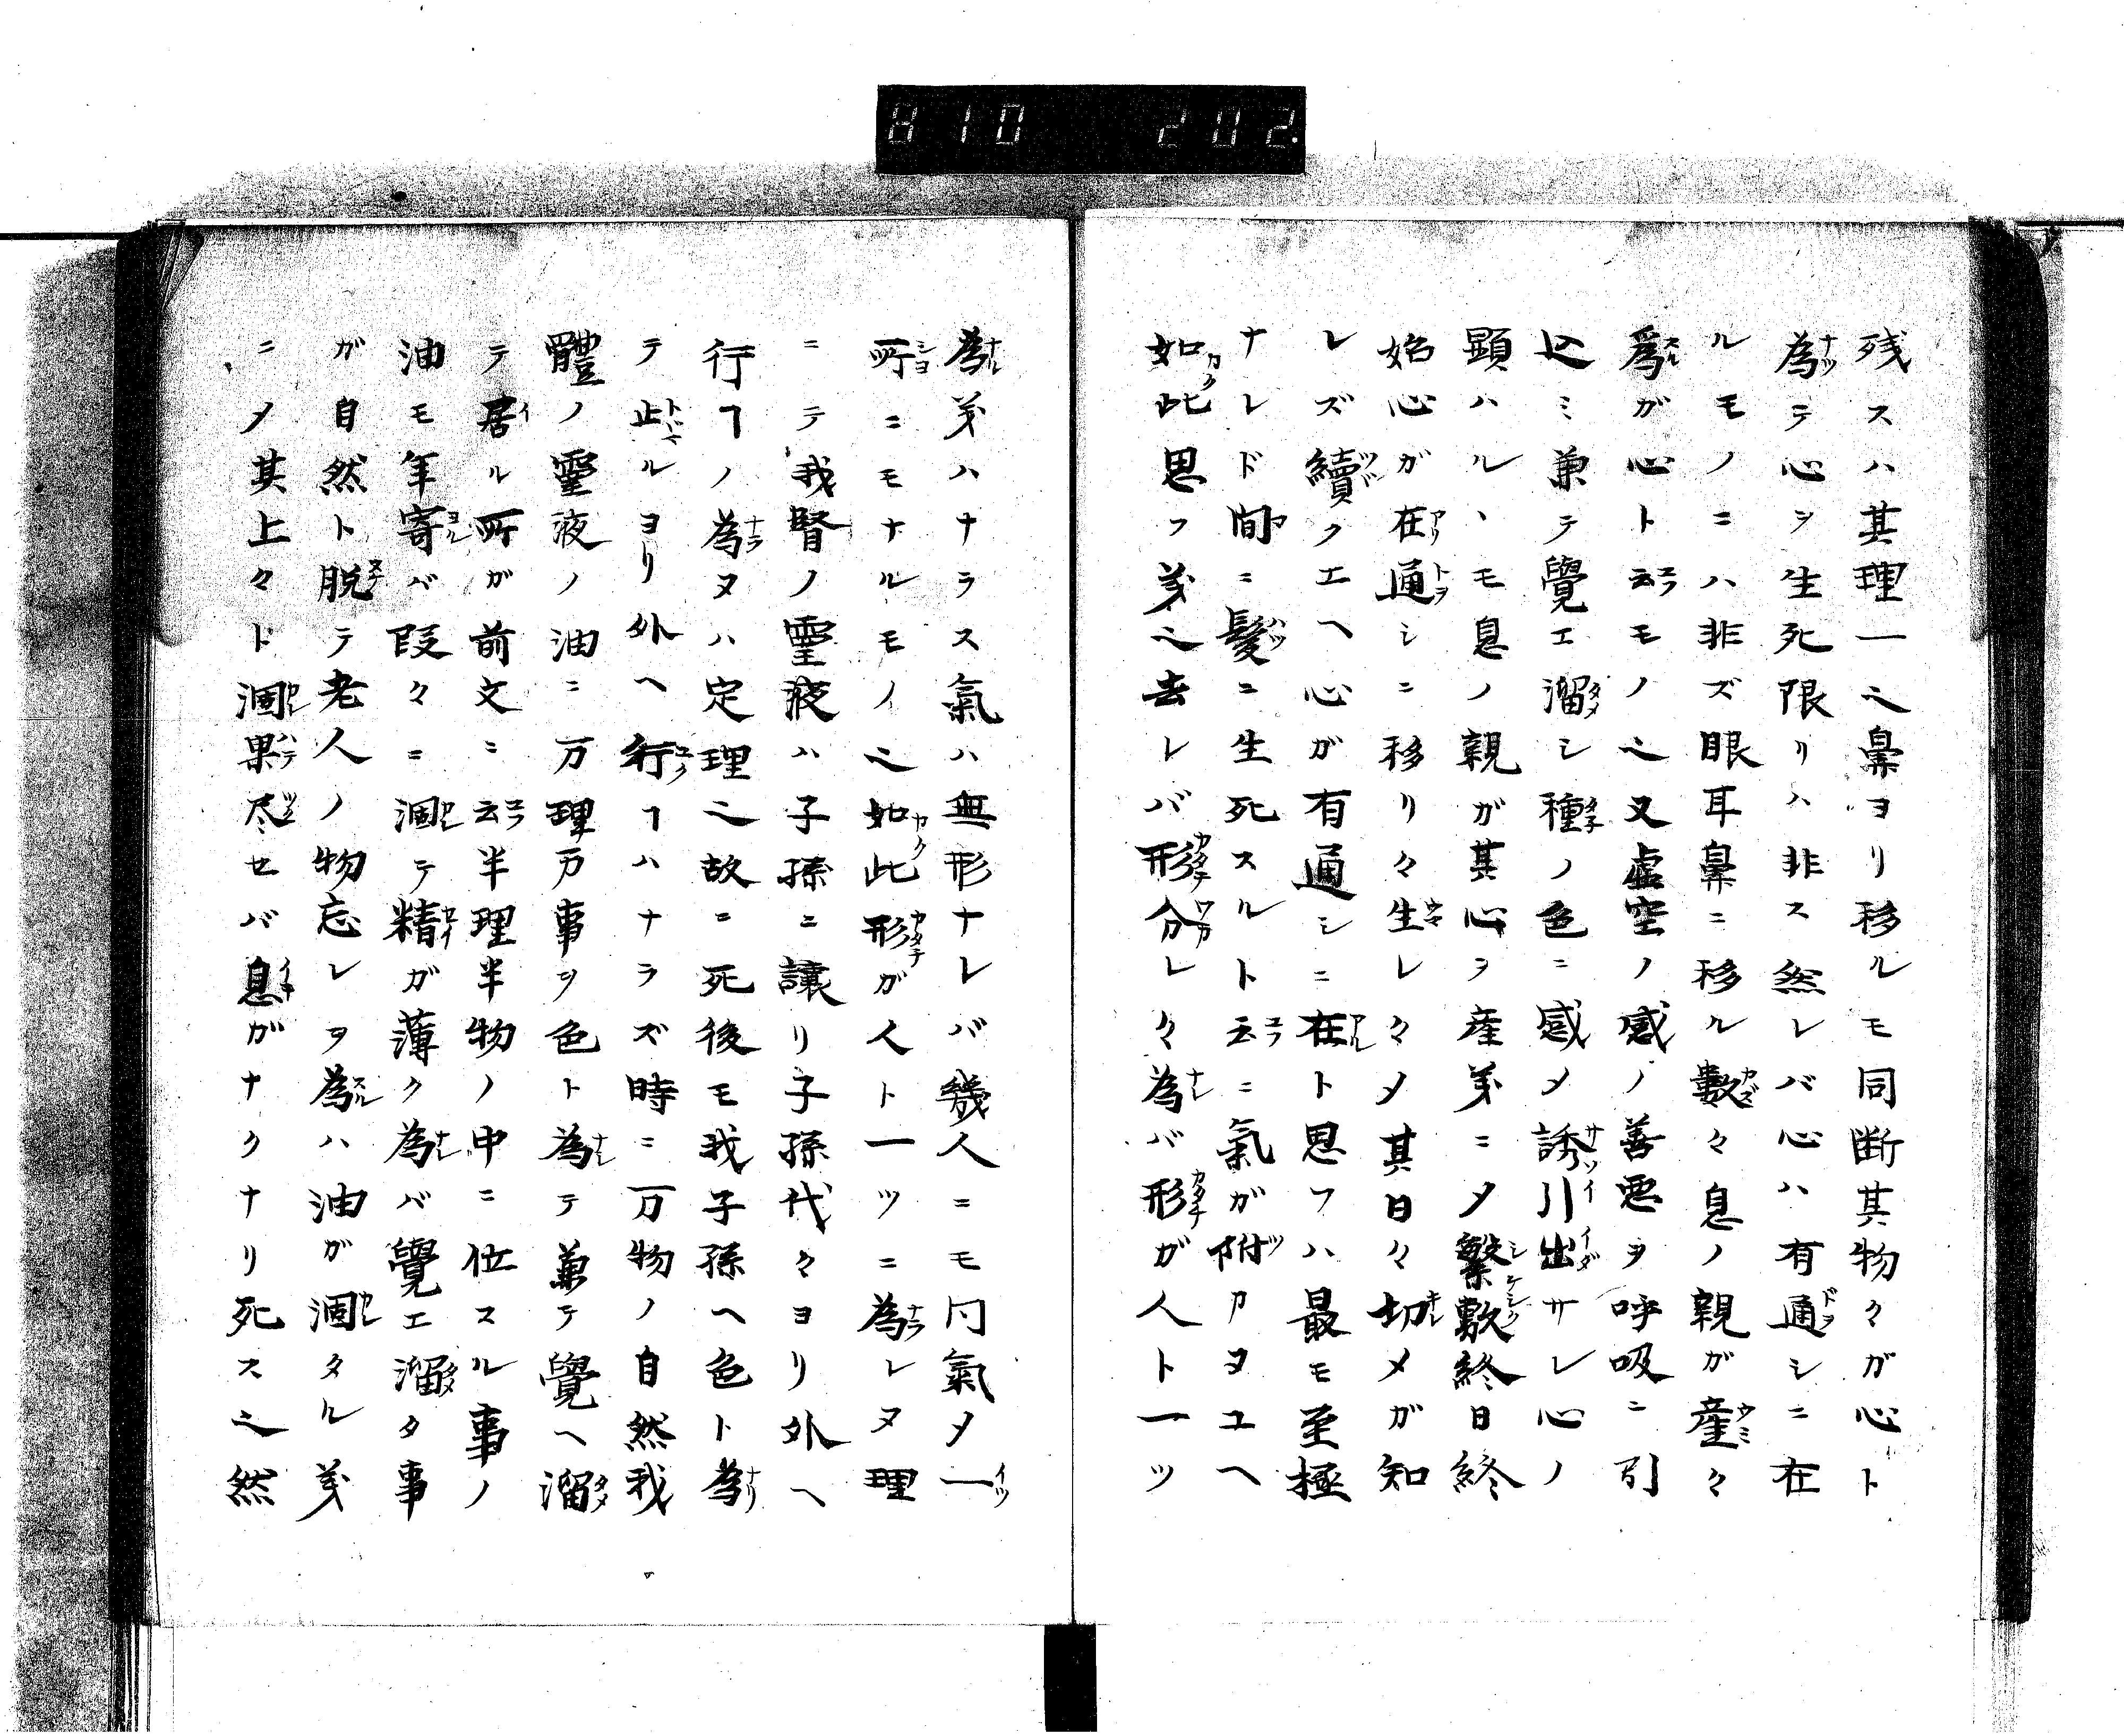 810 202.
残スハ其理一之鼻ヨリ移ルモ同断其物々ガ心ト
為テ心ヲ生死限リハ非ス然レバ心ハ有通シニ在
ルモノニハ非ズ眼耳鼻ニ移ル數々息ノ親ガ産々
爲ガ心ト云モノ之又虚空ノ感ノ善悪ヲ呼吸ニ引
込ミ兼テ覺エ溜シ種ノ色ニ感メ誘引出サレ心ノ
顕ハルヽモ息ノ親ガ其心ヲ産㒵ニメ繁敷終日終
始心ガ在通シニ移リ々生レ々メ其日々切メガ知
レズ續クエヘ心ガ有通シニ在ト思フハ最モ至極
ナレド間ニ髪ニ生死スルト云ニ氣ガ附カヌユヘ
如此思フ㒵之去レバ形分レ々為バ形ガ人ト一ツ
為㒵ハナラス氣ハ無形ナレバ幾人ニモ同氣メ一
所ニモナルモノ之如此形ガ人ト一ツニ為レヌ理
ニテ我腎ノ靈液ハ子孫ニ譲リ子孫代々ヨリ外ヘ
行ヿノ為ヌハ定理之故ニ死後モ我子孫ヘ色ト為
テ止ルヨリ外ヘ行ヿハナラズ時ニ万物ノ自然我
體ノ靈液ノ油ニ万理万事ヲ色ト為テ兼テ覺ヘ溜
テ居ル所ガ前文ニ云半理半物ノ中ニ位スル事ノ
油モ年寄バ段々ニ涸テ精ガ薄ク為バ覺エ溜タ事
ガ自然ト脱テ老人ノ物忘レヲ為ハ油ガ涸タル㒵
ニメ其上々ド涸果尽セバ息ガナクナリ死ス之然